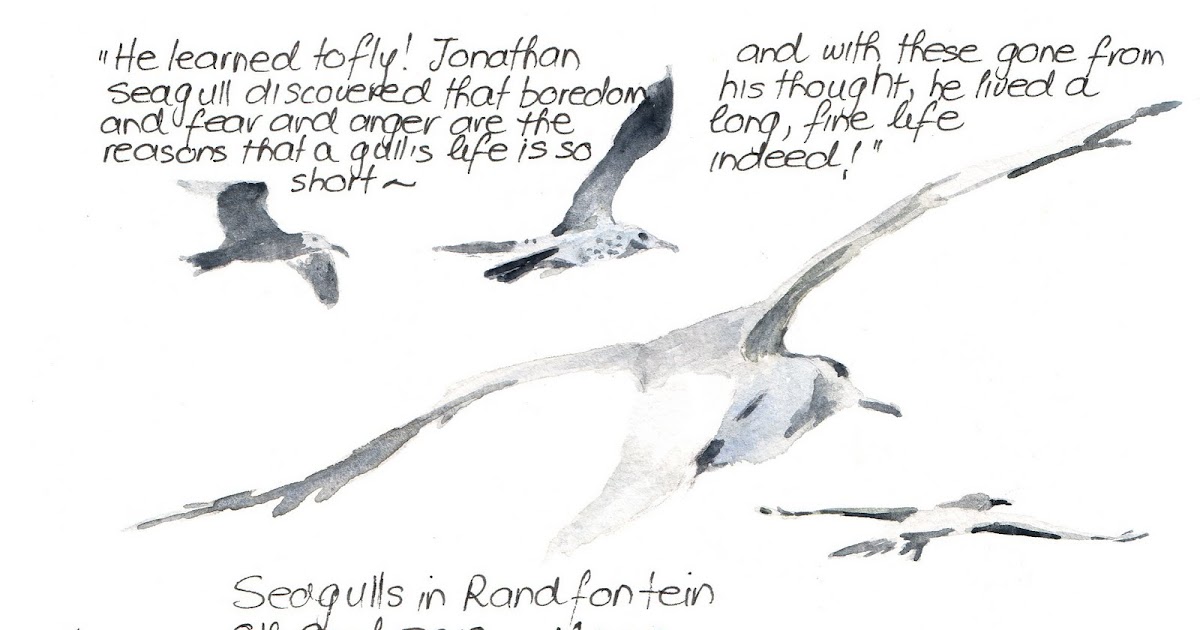 "He learned to fly! Jonathan
Seagull discovered that boredom
and fear and anger are the
reasons that a gull's life is so
short ~
and with these gone from
his thought, he lived a
long, fine life
indeed!"
Seagulls in Randfontein